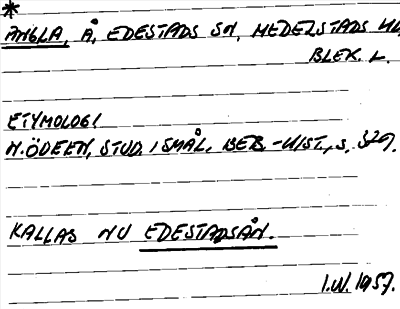 *
ÄNGLA, Å, EDESTADS SN, MEDELSTADS HD,
BLEK. L.
ETYMOLOGI
N. ÖDEEN, STUD. I SMÅL. BEB.-HIST., S. 329.
KALLAS NU EDESTADSÅN.
I.W. 1957.